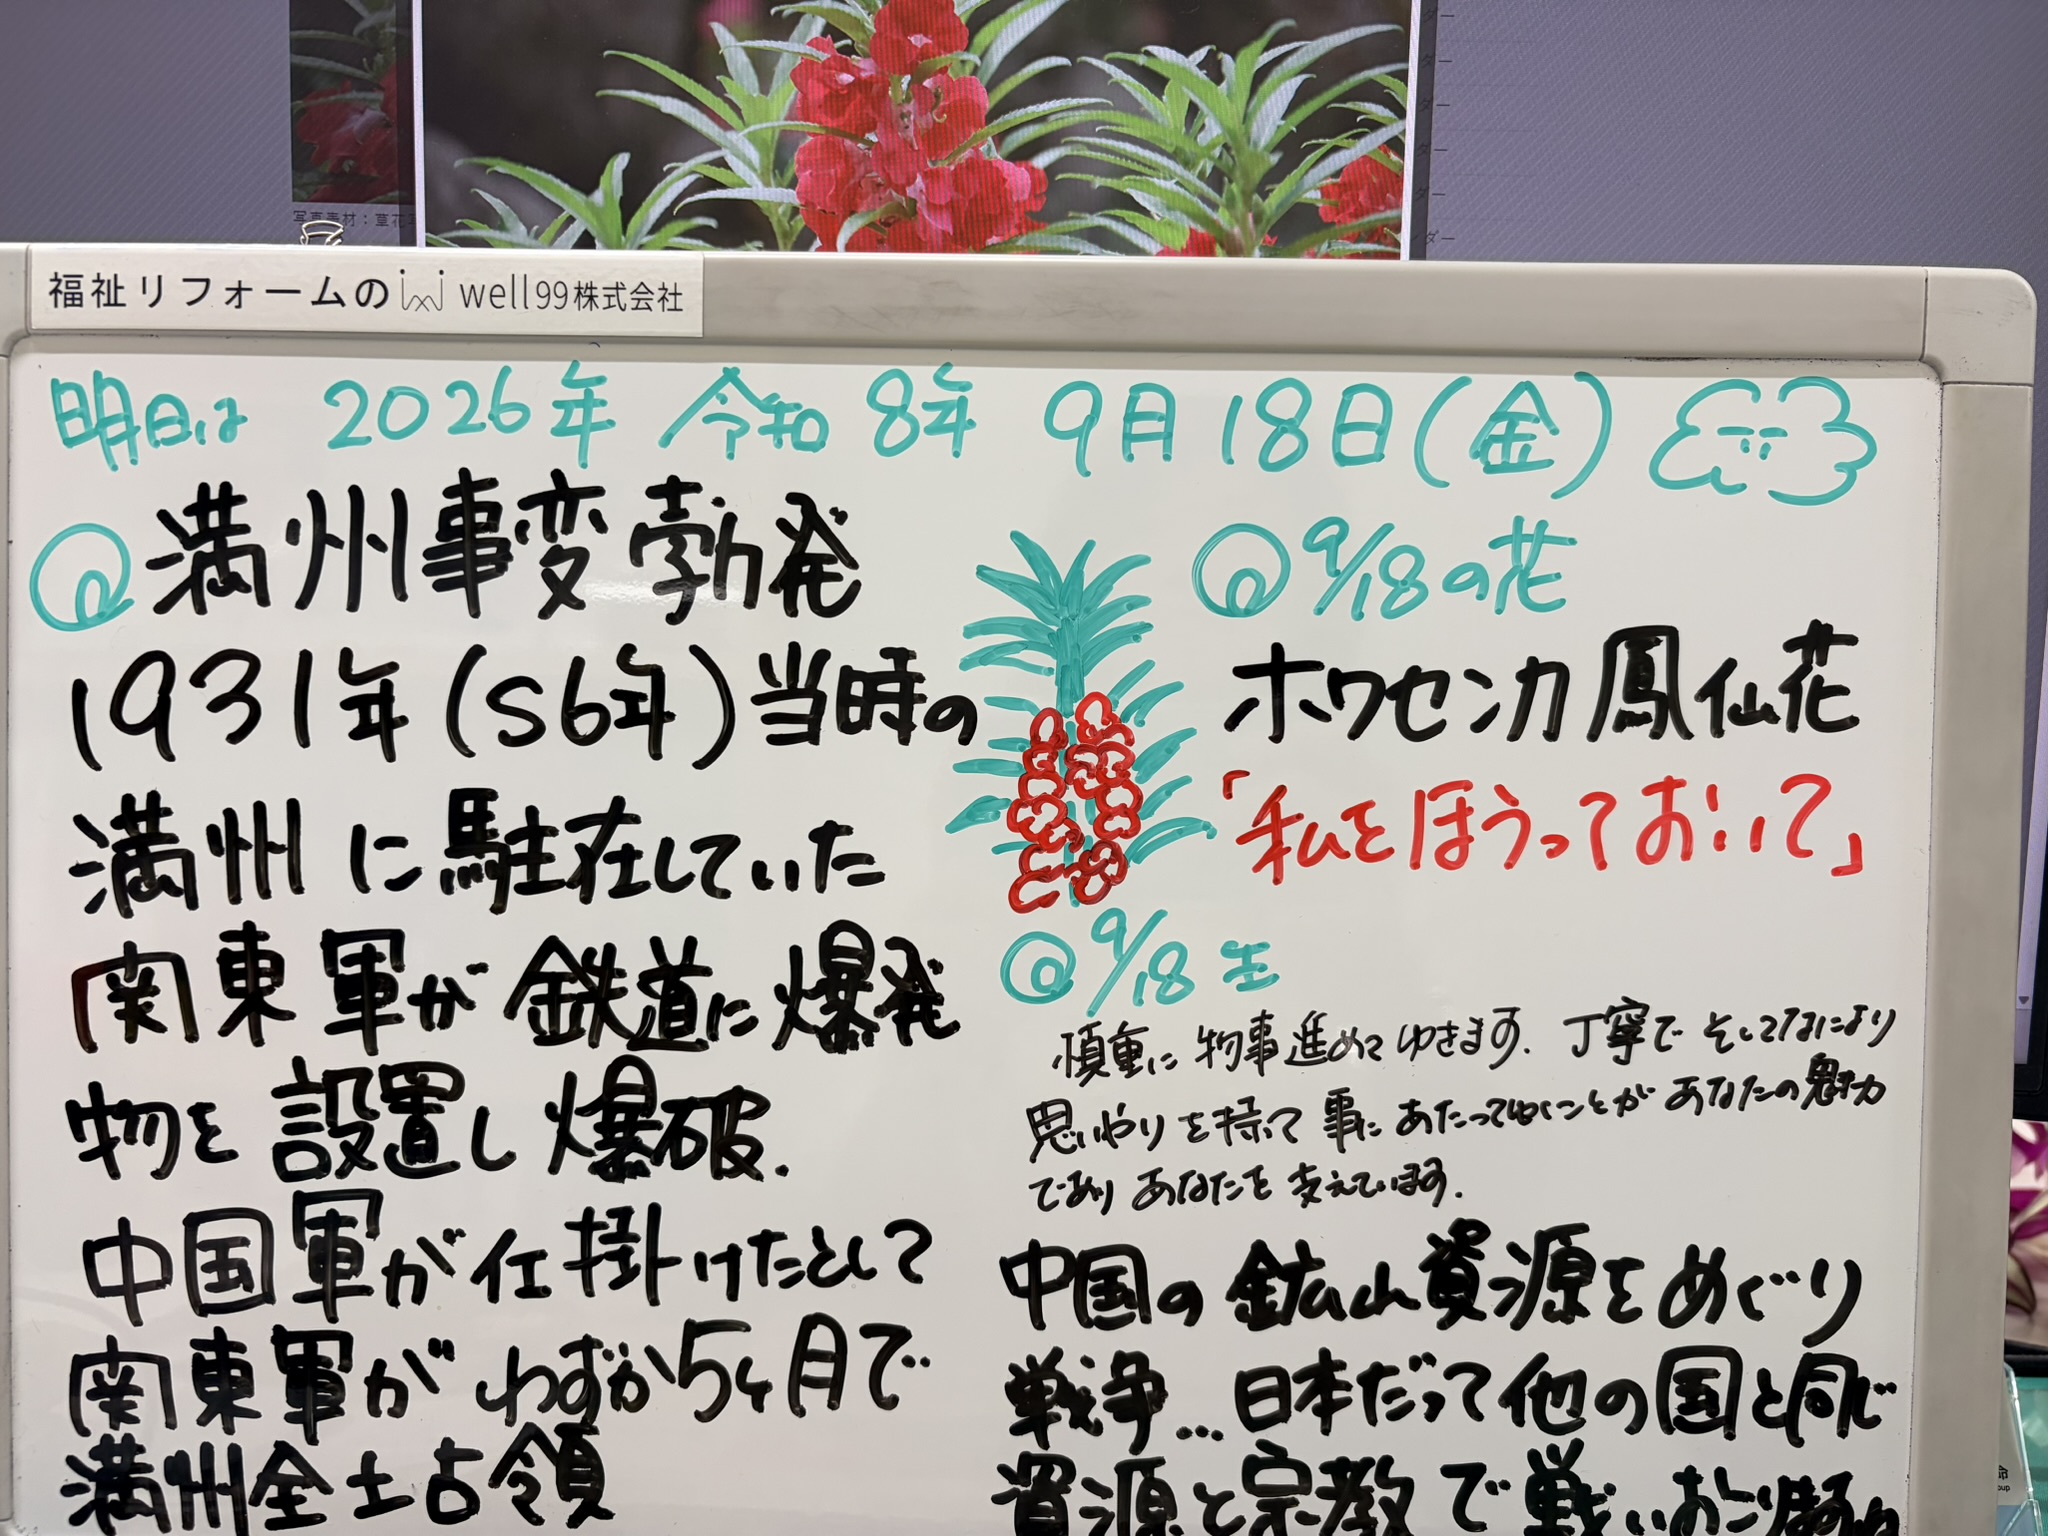 写真素材：草花
福祉リフォームの well99株式会社
明日は 2026年 令和8年 9月18日(金)
満州事変勃発
1931年(S6年)当時の
満州に駐在していた
関東軍が鉄道に爆発
物を設置し爆破.
中国軍が仕掛けたとして
関東軍がわずか5ヶ月で
満州全土占領
9/18の花
ホウセンカ 鳳仙花
「私をほうっておいて」
9/18生
慎重に物事進めてゆきます. 丁寧で そしてなにより
思いやりを持って 事にあたってゆくことが あなたの魅力
であり あなたを支えています.
中国の鉱山資源をめぐり
戦争... 日本だって他の国と同じ
資源と宗教で戦い